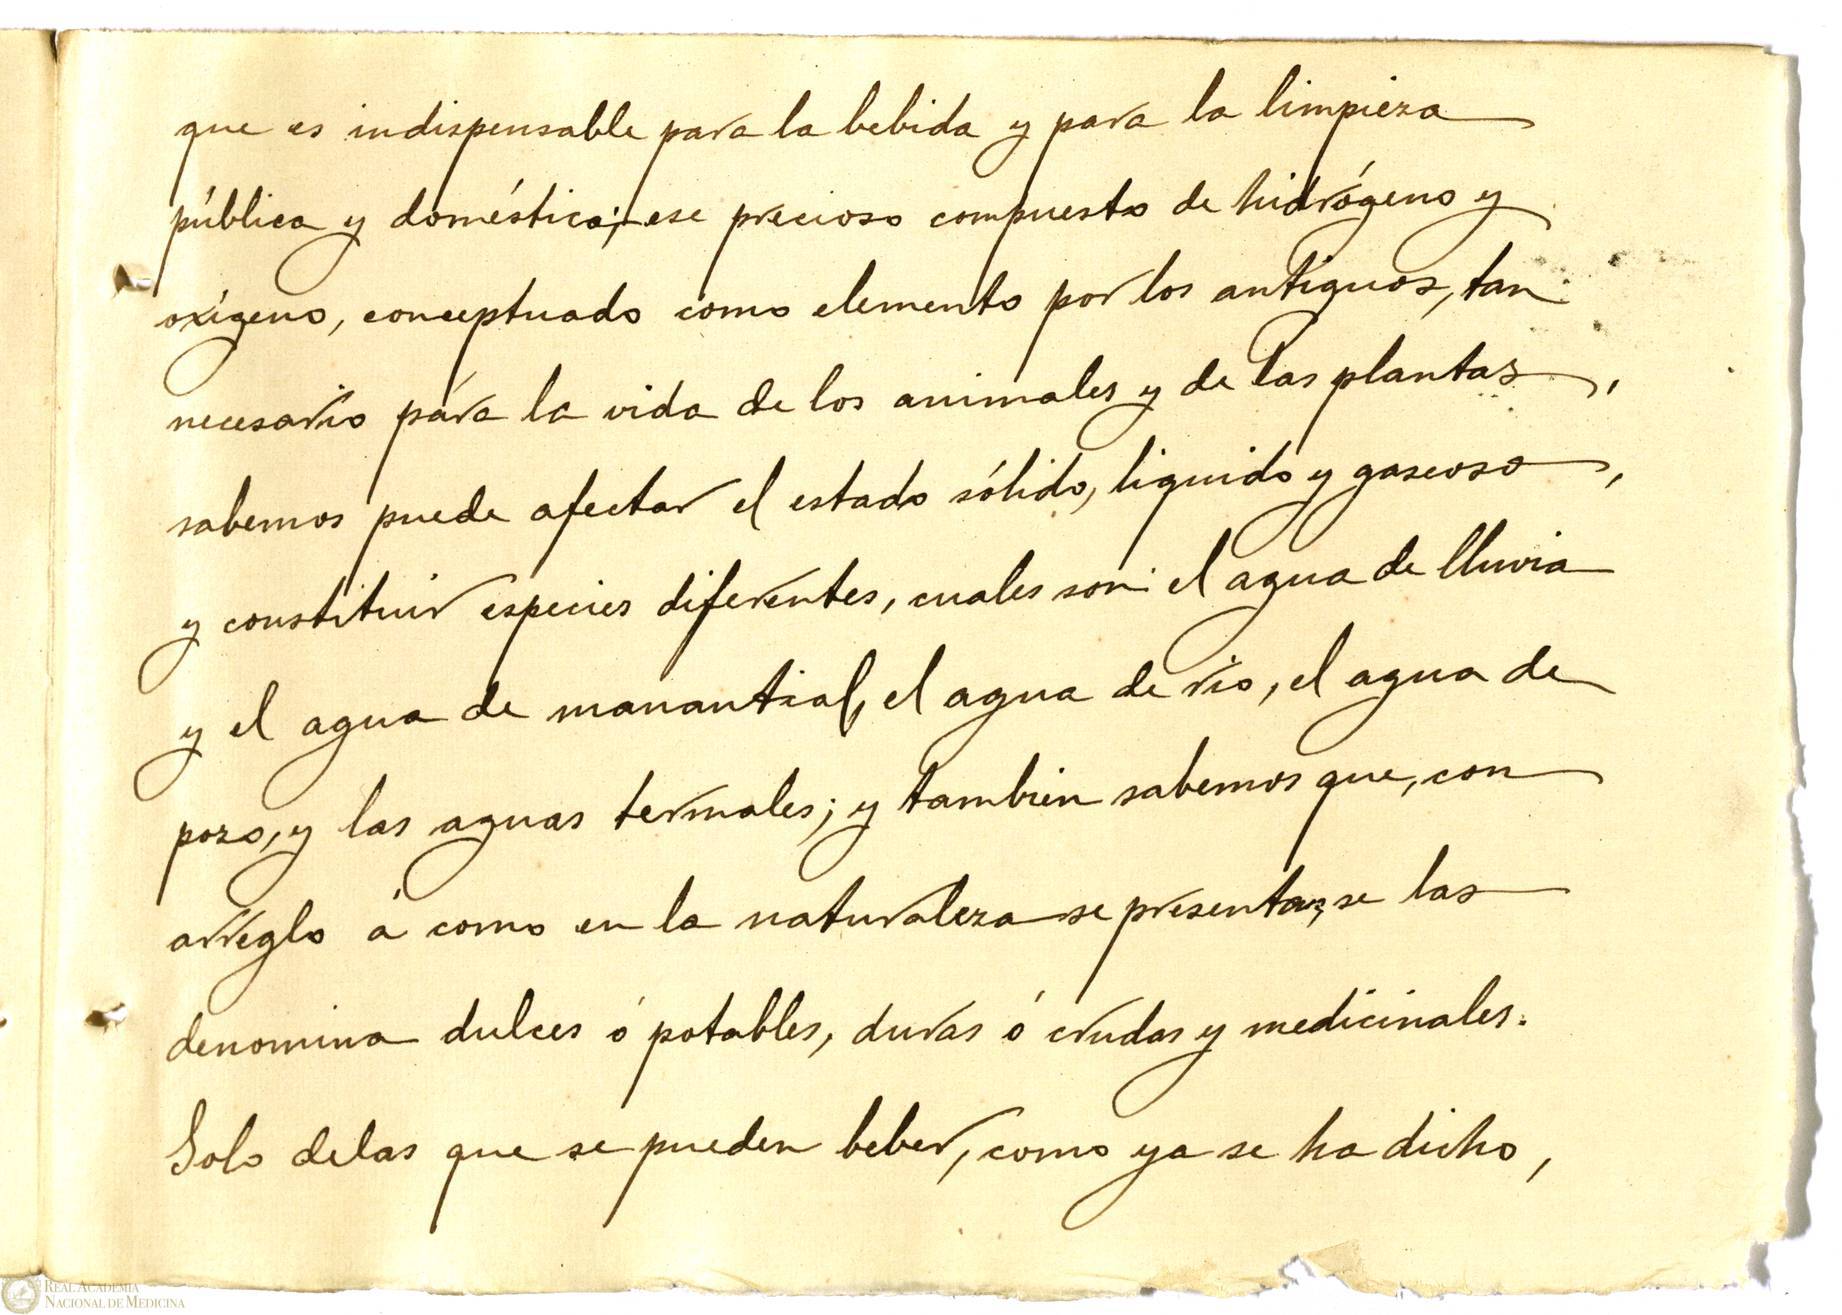 que es indispensable para la bebida y para la limpieza
pública y doméstica; ese precioso compuesto de hidrógeno y
oxígeno, conceptuado como elemento por los antiguos, tan
necesario para la vida de los animales y de las plantas,
sabemos puede afectar el estado sólido, liquido y gaseoso,
y constituir especies diferentes, cuales son el agua de lluvia
y el agua de manantial, el agua de rio, el agua de
pozo, y las aguas termales; y tambien sabemos que, con
arreglo á como en la naturaleza se presentan, se las
denomina dulces ó potables, duras ó crudas y medicinales.
Solo delas que se pueden beber, como ya se ha dicho,
REAL ACADEMIA
NACIONAL DE MEDICINA